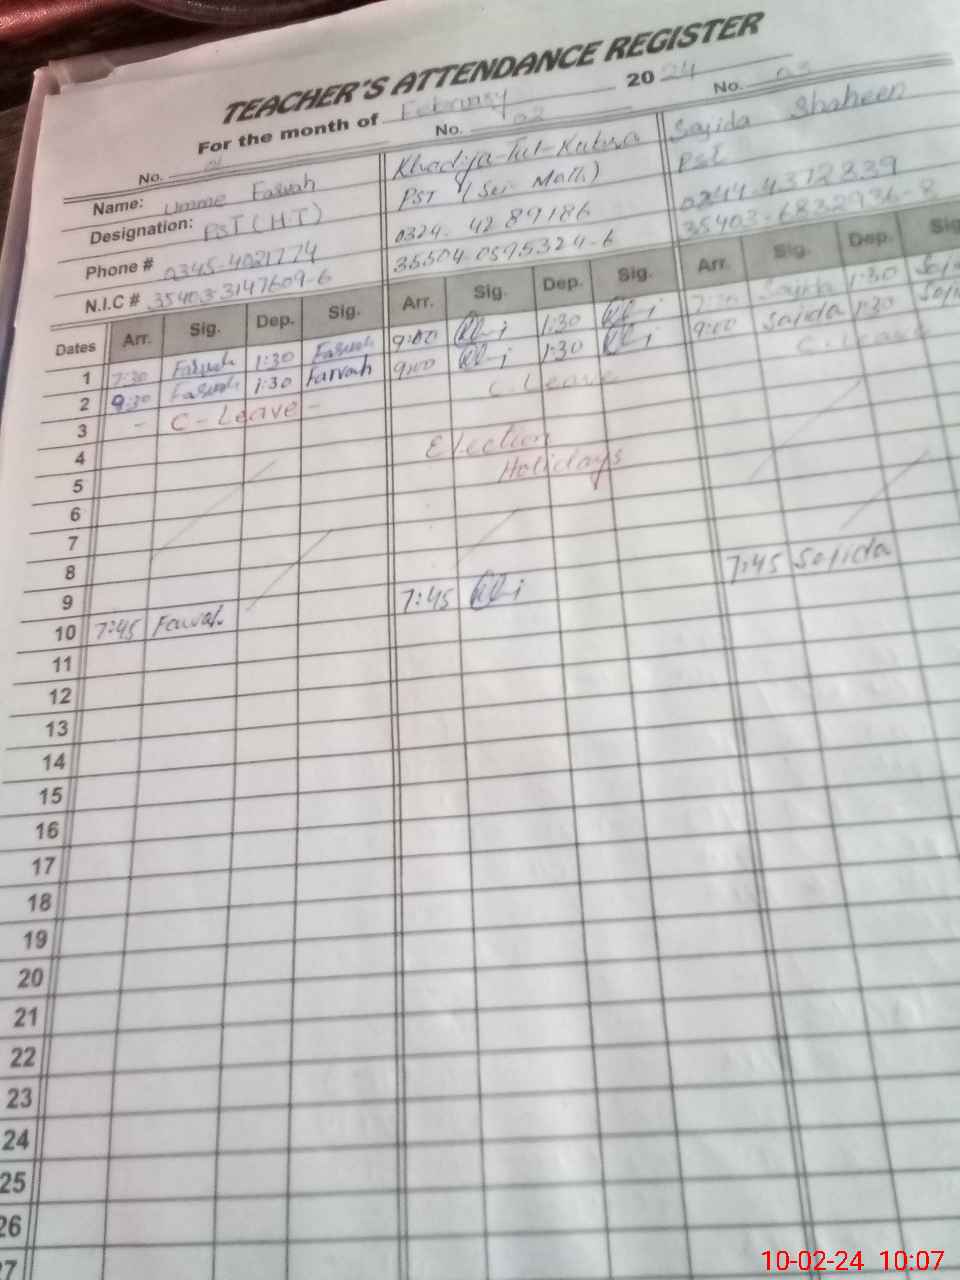 TEACHER'S ATTENDANCE REGISTER
For the month of February 2024
No. No. 02 No. 03
Name: Umme Farwah Khadija-Tul-Kubra Sajida Shaheen
Designation: PST (H.T) PST (Sci-Math) PST
Phone # 0345-4021774 0324-4289186 0244-4372839
N.I.C # 35403-3147609-6 35504-0595324-6 35403-6832936-8
Dates Arr. Sig. Dep. Sig. Arr. Sig. Dep. Sig. Arr. Sig. Dep. Sig
1 7:30 Farwah 1:30 Farwah 9:00 1:30 7:30 Sajida 1:30 Saji
2 9:30 Farwah 1:30 Farvah 9:00 1:30 9:00 Sajida 1:30 Saji
3 - C-Leave - C.Leave C.Leave
4
5 Election
6 Holidays
7
8
9
10 7:45 Farwah 7:45 7:45 Sajida
11
12
13
14
15
16
17
18
19
20
21
22
23
24
25
26
27
10-02-24 10:07